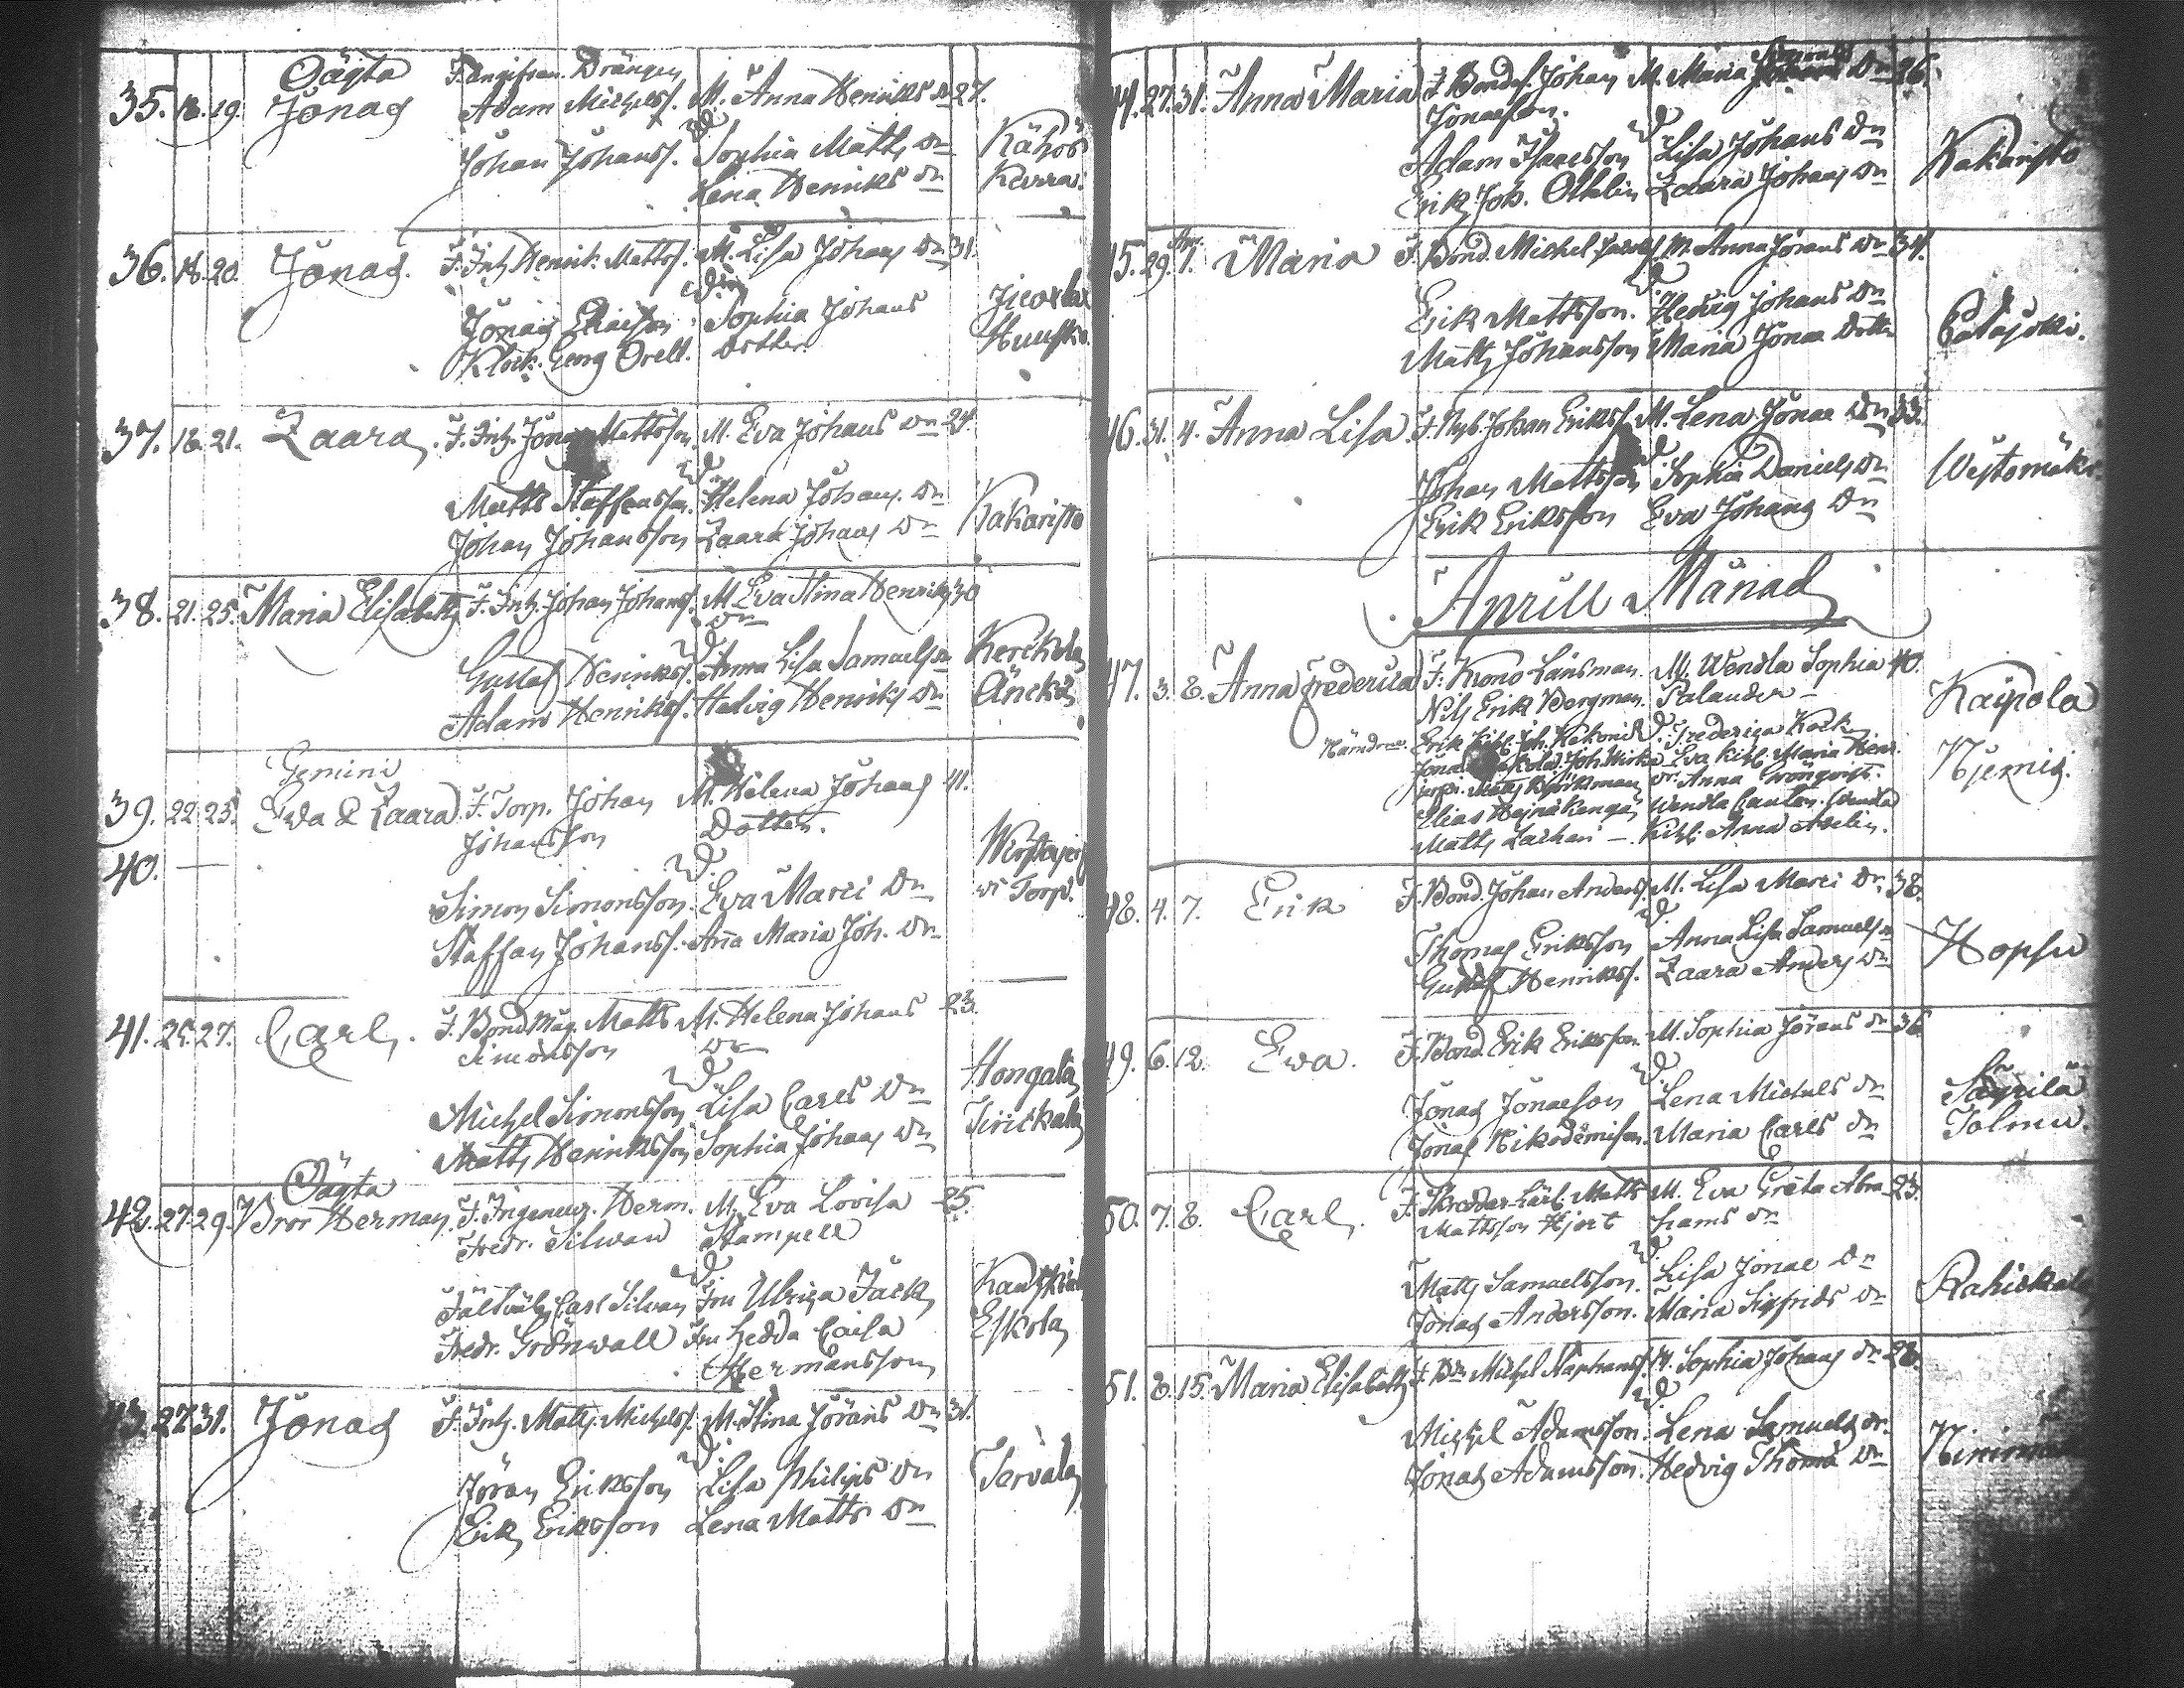 Oägta F. angifven. Drängen
35. 18. 19. Jonas Adam Michelss. M. Anna Henriks dr 27.
Johan Johanss. Sophia Matts Dr Kähös
Lena Henriks dr Kerra.
36. 18. 20. Jonas. F. Inh. Henrik Mattss. M. Lisa Johans Dr 31.
Jonas Eliaeson Sophia Johans
Klock. Georg Orell. dotter.
37. 18. 21. Zaara F. Inh. Jonas Mattsson M. Eva Johans Dr 24.
Matts Staffansson. Helena Johans Dr
Johan Johansson Zaara Johans Dr Kakaristo
38. 21. 25. Maria Elisabeth F. Inh. Johan Johanss. M. Eva Stina Henriks 30
Dr
Gustaf Henrikss. Anna Lisa Samuels dr
Adam Henrikss. Hedvig Henriks Dr
Gemini
39. 22. 25. Eva & Zaara F. Torp. Johan M. Helena Johans 41.
Johansson Dotter.
40. —
Simon Simonsson. Eva Marci Dr
Torp.
Staffan Johanss. Anna Maria Joh. Dr
41. 25. 27. Carl. F. Bond. Måg. Matts M. Helena Johans 23.
Simonsson Dr
Hongala
Michel Simonsson Lisa Carls Dr
Matts Henriksson Sophia Johans Dr
Oägta
42. 27. 29. Bror Herman. F. Ingenieur. Herm. M. Eva Lovisa 25.
Fredr. Silwan Stampell
Carl Silwan Fru Ulrica Jack
Fredr. Grönwall Fru Hedda Caisa Eskola
Hermansson
43. 27. 31. Jonas F. Inh. Matts Michelss. M. Stina Jörans Dr 31.
Jöran Eriksson Lisa Philips Dr Tervala
Erik Eriksson Lena Matts Dr
44. 27. 31. Anna Maria F. Bondes. Johan M. Maria Dr 26.
Jonaeson.
Adam Isaacsson Lisa Johans Dr
Erik Joh. Othelin Zaara Johans Dr Kakaristo
45. 29. Apr. 1. Maria F. Bond. Michel M. Anna Jörans Dr 34.
Erik Mattsson. Hedvig Johans Dr
Matts Johansson Maria Jonae Dotter
46. 31. 4. Anna Lisa F. Nyb. Johan Erikss. M. Lena Jonae Dr 33.
Johan Mattsson Sophia Daniels Dr
Erik Eriksson Eva Johans Dr
Aprill Månad
47. 3. 8. Anna Fredrica F. Krono Länsman. M. Wendla Sophia 40.
Nils Erik Bergman. Palander — Kaipola
Fredrica Kock
Nämdem.
Matts Björkman Anna Grönqvist. Njemis.
Elias Wendla
Matts Lackari — Anna Aselin.
48. 4. 7. Erik F. Bond. Johan Anderss. M. Lisa Marci Dr 38.
Thomas Eriksson Anna Lisa Samuels dr
Gustaf Henrikss. Zaara Anders Dr Hopsu
49. 6. 12. Eva. F. Bond. Erik Eriksson M. Sophia Jörans dr 36
Jonas Jonaeson Lena Michels dr
Jonas Nikodemison. Maria Carls dr Tolmu.
50. 7. 8. Carl. F. Skräddar-Lärl. Matts M. Eva Greta Abra 23.
Mattsson Hjort hams dr
Matts Samuelsson. Lisa Jonae Dr
Jonas Andersson. Maria Sigfrids Dr
51. 8. 15. Maria Elisabeth F. Bn Michel Staphanss. M. Sophia Johans dr 28.
Michel Adamsson. Lena Samuels dr.
Jonas Adamsson. Hedvig Thomae Dr